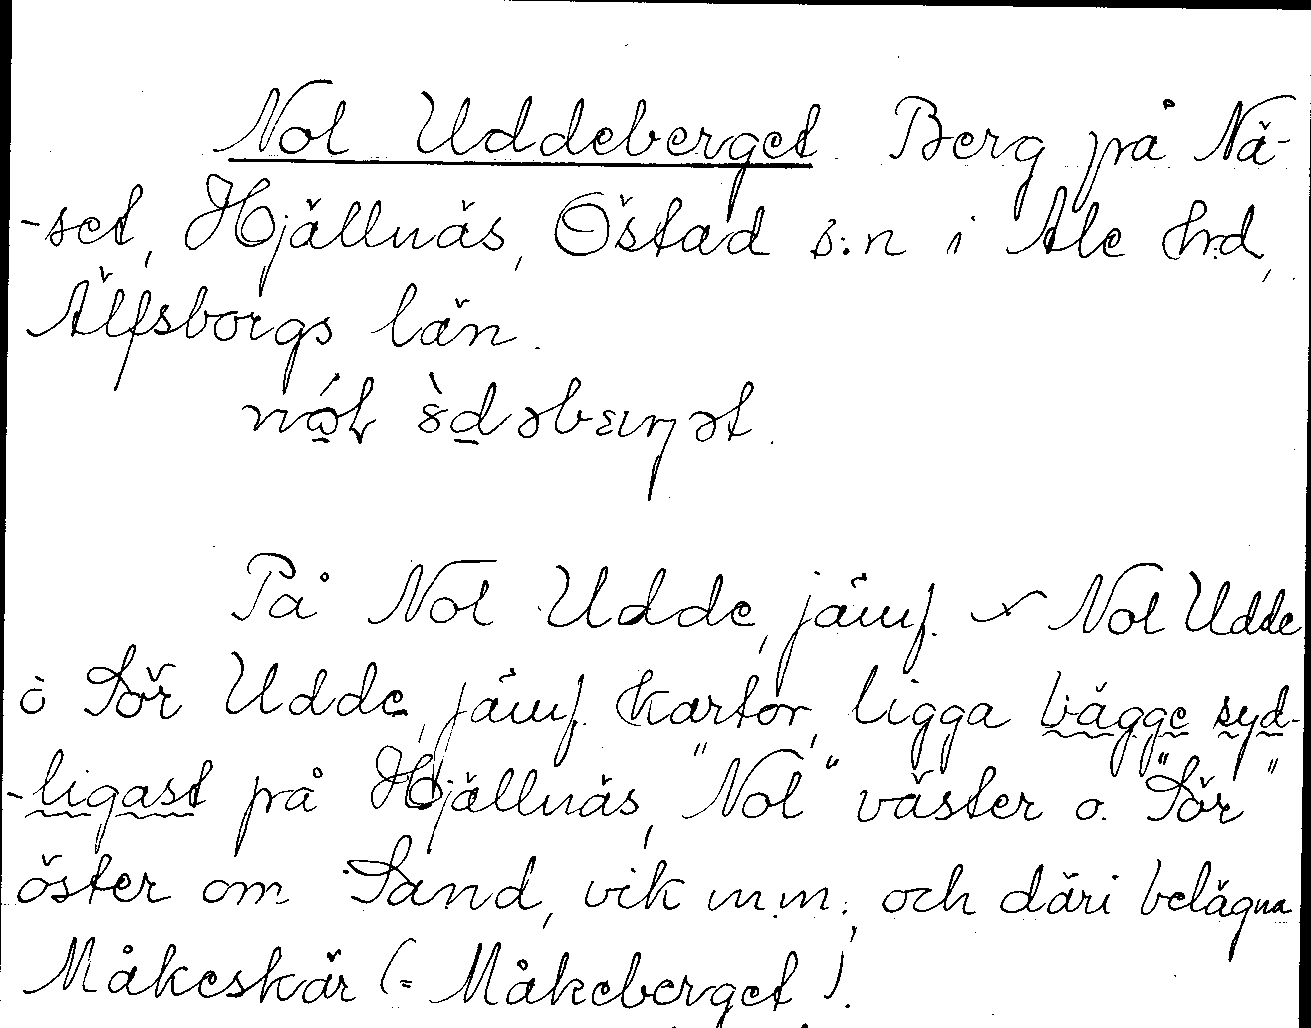 Nol Uddeberget. Berg på Nä-
-set, Hjällnäs, Östad s:n i Ale h:d,
Älfsborgs län.
På Nol Udde, jämf. Nol Udde
o Sör Udde, jämf. kartor, ligga bägge syd-
-ligast på Hjällnäs, "Nol" väster o. "Sör"
öster om Sand, vik m.m., och däri belägna
Måkeskär (= Måkeberget).